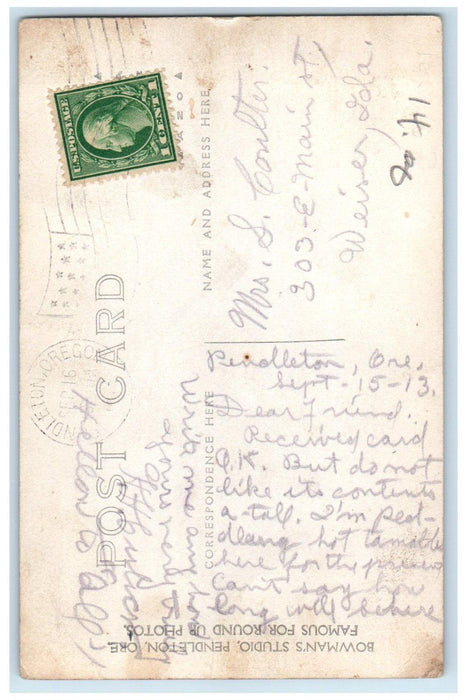 U.S. POSTAGE
1 CENT 1
PENDLETON, OREGON
SEP 16
POST CARD
NAME AND ADDRESS HERE
CORRESPONDENCE HERE
14.00
Mrs. S. Coulter.
303-E-Main st,
Weiser, Ida.
Pendleton, Ore,
Sept-15-13.
Dear friend.
Received card
O.K. But do not
like its contents
a-tall. I'm ped-
dlang hot tamales
here for the
Can't say how
long will be here
Write me any how
as ever
Hellow to all
BOWMAN'S STUDIO, PENDLETON, ORE.
FAMOUS FOR ROUND UP PHOTOS.